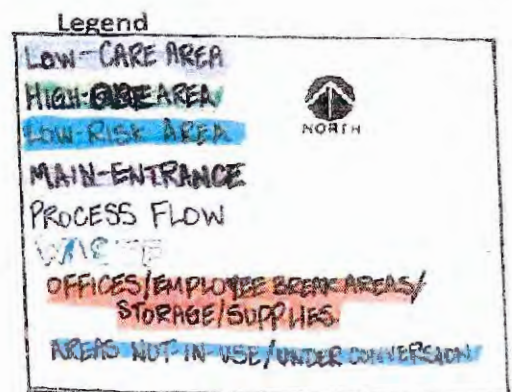 Legend
LOW-CARE AREA
HIGH-CARE AREA
LOW-RISK AREA
NORTH
MAIN-ENTRANCE
PROCESS FLOW
WASTE
OFFICES/EMPLOYEE BREAK AREAS/
STORAGE/SUPPLIES
AREAS NOT-IN-USE/UNDER CONVERSION